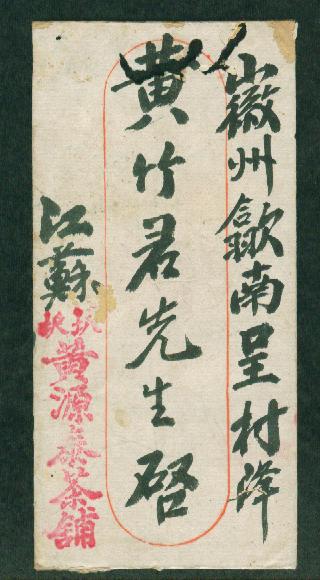 徽州歙南呈村降
黄竹君先生啓
江蘇
黄源泰茶鋪